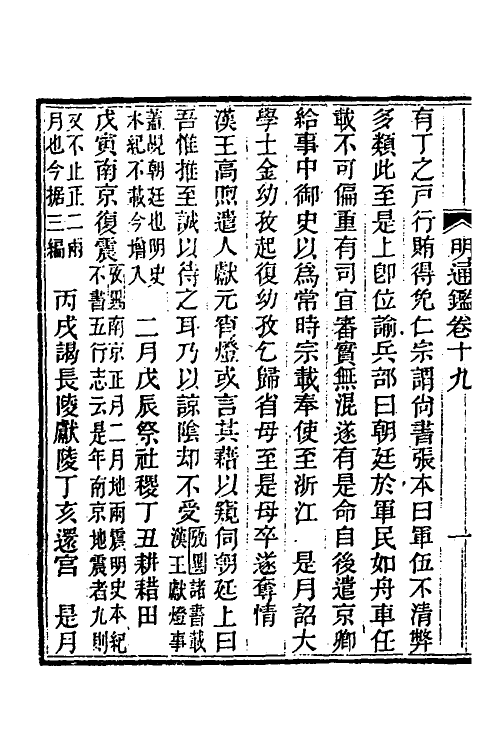 明通鑑卷十九
一
有丁之戸行賄得免仁宗謂尙書張本曰軍伍不清弊
多類此至是上卽位諭兵部曰朝廷於軍民如舟車任
載不可偏重有司宜審實無混遂有是命自後遣京卿
給事中御史以爲常時宗載奉使至浙江　是月詔大
學士金幼孜起復幼孜乞歸省母至是母卒遂奪情
漢王高煦遣人獻元宵燈或言其藉以窺伺朝廷上曰
吾惟推至誠以待之耳乃以諒陰却不受攷異諸書載漢王獻燈事
蓋覘朝廷也明史本紀不載今增入　二月戊辰祭社稷丁丑耕耤田
戊寅南京復震攷異南京正月二月地兩震明史本紀不書五行志云是年南京地震者九則
又不止正二兩月也今据三編　丙戌謁長陵獻陵丁亥還宮　是月